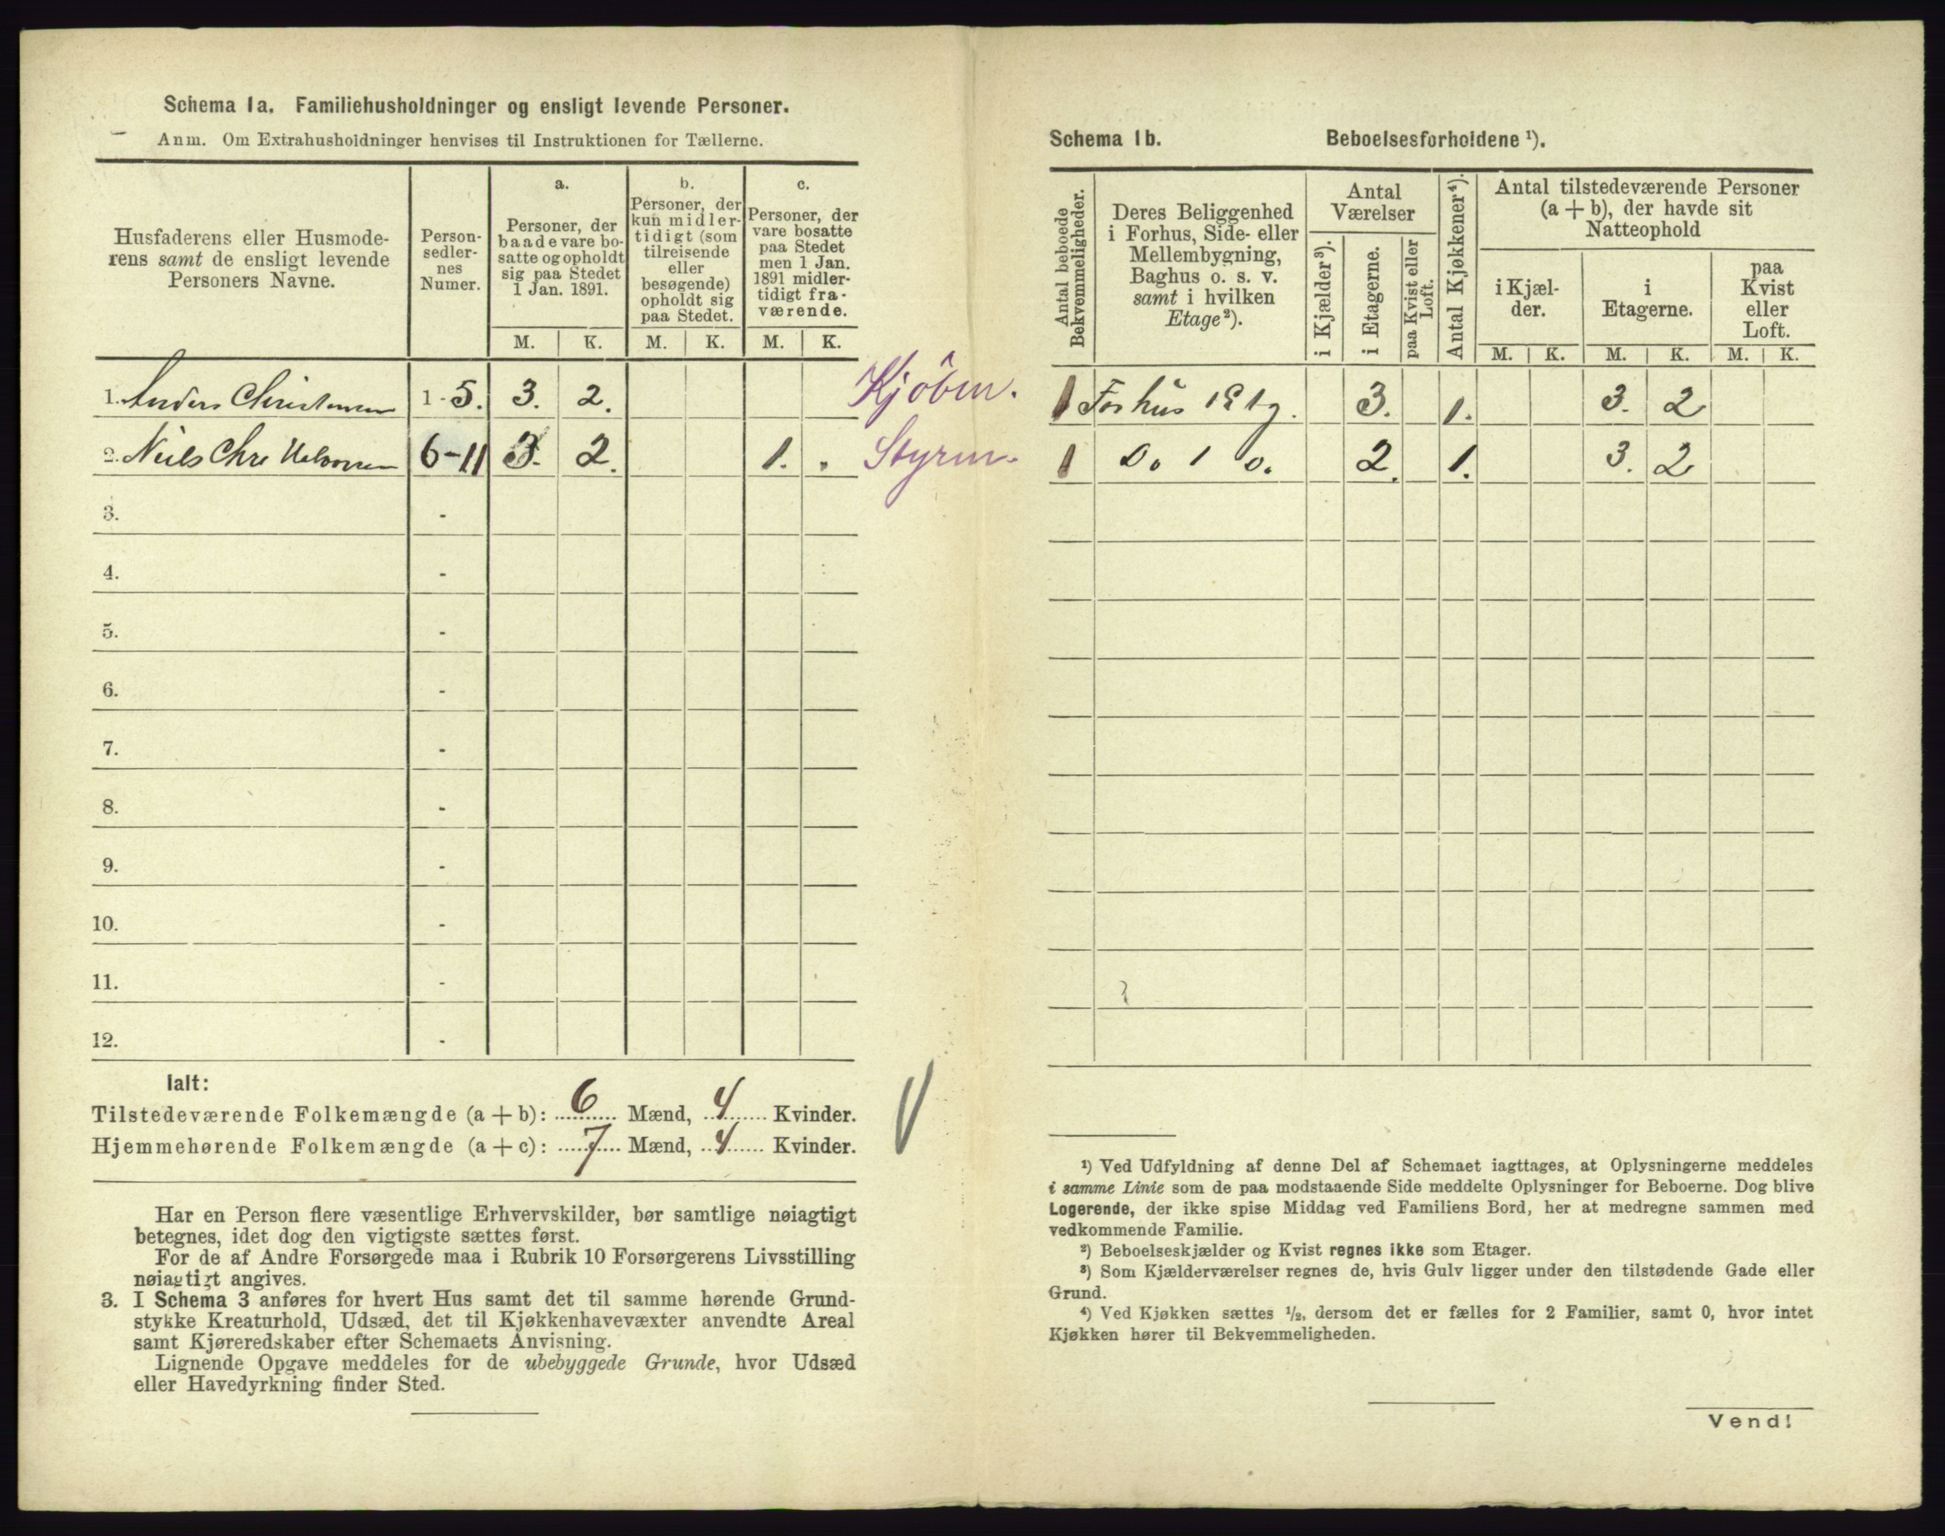 Schema 1a. Familiehusholdninger og ensligt levende Personer.
Anm. Om Extrahusholdninger henvises til Instruktionen for Tællerne.
Husfaderens eller Husmode-
rens samt de ensligt levende
Personers Navne.
Person-
sedler-
nes
Numer.
a.
Personer, der
baade vare bo-
satte og opholdt
sig paa Stedet
1 Jan. 1891.
b.
Personer, der
kun midler-
tidigt (som
tilreisende
eller
besøgende)
opholdt sig
paa Stedet.
c.
Personer, der
vare bosatte
paa Stedet
men 1 Jan.
1891 midler-
tidigt fra-
værende.
M. K. M. K. M. K.
1. Anders Christensen 1 - 5. 3. 2. Kjöbm.
2. Niels Chr 6-11 3. 2. 1. . Styrm.
3. -
4. -
5. -
6. -
7. -
8. -
9. -
10. -
11. -
12. -
Ialt:
Tilstedeværende Folkemængde (a + b): 6 Mænd, 4 Kvinder.
Hjemmehørende Folkemængde (a + c): 7 Mænd, 4 Kvinder.
Har en Person flere væsentlige Erhvervskilder, bør samtlige nøiagtigt
betegnes, idet dog den vigtigste sættes først.
For de af Andre Forsørgede maa i Rubrik 10 Forsørgerens Livsstilling
nøiagtigt angives.
3. I Schema 3 anføres for hvert Hus samt det til samme hørende Grund-
stykke Kreaturhold, Udsæd, det til Kjøkkenhavevæxter anvendte Areal
samt Kjøreredskaber efter Schemaets Anvisning.
Lignende Opgave meddeles for de ubebyggede Grunde, hvor Udsæd
eller Havedyrkning finder Sted.
Schema 1b. Beboelsesforholdene ¹).
Antal beboede
Bekvemmeligheder.
Deres Beliggenhed
i Forhus, Side- eller
Mellembygning,
Baghus o. s. v.
samt i hvilken
Etage²).
Antal
Værelser
i Kjælder³).
i Etagerne.
paa Kvist eller
Loft.
Antal Kjøkkener⁴).
Antal tilstedeværende Personer
(a + b), der havde sit
Natteophold
i Kjæl-
der.
i
Etagerne.
paa
Kvist
eller
Loft.
M. K. M. K. M. K.
1 Forhus 1 Etg. 3. 1. 3. 2
1 Do 1 Do. 2. 1. 3. 2
¹) Ved Udfyldning af denne Del af Schemaet iagttages, at Oplysningerne meddeles
i samme Linie som de paa modstaaende Side meddelte Oplysninger for Beboerne. Dog blive
Logerende, der ikke spise Middag ved Familiens Bord, her at medregne sammen med
vedkommende Familie.
²) Beboelseskjælder og Kvist regnes ikke som Etager.
³) Som Kjælderværelser regnes de, hvis Gulv ligger under den tilstødende Gade eller
Grund.
⁴) Ved Kjøkken sættes ½, dersom det er fælles for 2 Familier, samt 0, hvor intet
Kjøkken hører til Bekvemmeligheden.
Vend!